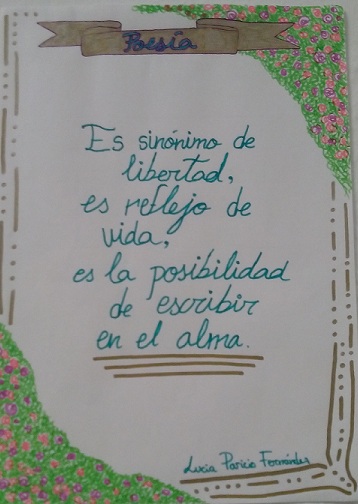 Poesía
Es sinónimo de
libertad,
es reflejo de
vida,
es la posibilidad
de escribir
en el alma.
Lucía Paricio Fernández